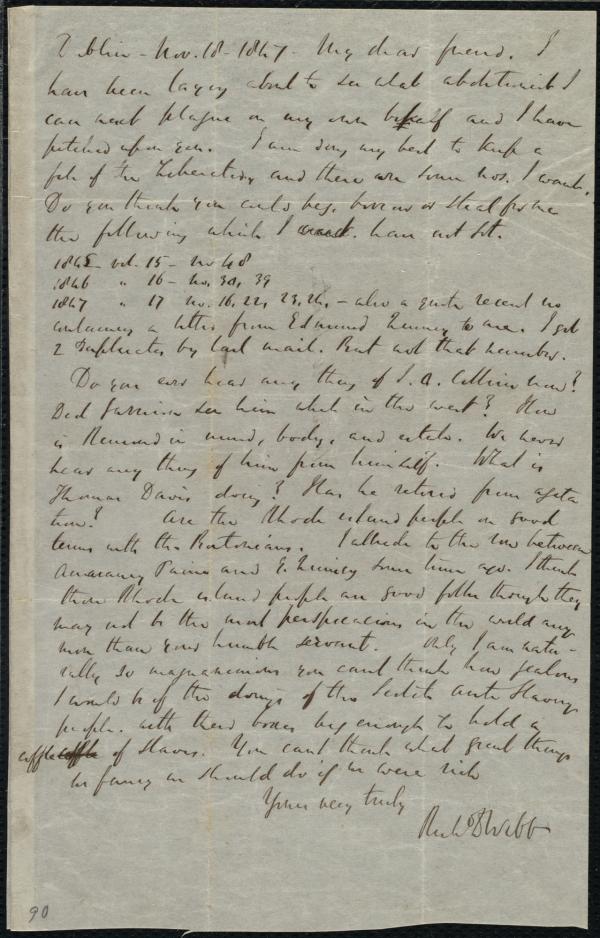 Dublin - Nov. 18 - 1847 - My dear friend. I
have been laying about to see what abolitionist I
can next plague on my own behalf and I have
pitched upon you. I am doing my best to keep a
file of the Liberator, and there are some nos. I want.
Do you think you could beg, borrow or steal for me
the following which I have not got.
1845 vol. 15 - no 48
1846 " 16 - no. 39
1847 " 17 no. 16, 22, 23, 24, - also a quite recent no
containing a letter from Edmund Quincy to me. I got
2 duplicates by last mail. But not that number.
Do you ever hear any thing of J. A. Collins now?
Did Garrison see him when in the west? How
is Remond in mind, body, and estate. We never
hear any thing of him from himself. What is
Thomas Davis doing? Has he retired from agita
tion? Are the Rhode island people on good
terms with the Bostonians. I allude to the row between
Amarancy Paine and E. Quincy some time ago. I think
those Rhode island people are good folks though they
may not be the most perspicacious in the world any
more than your humble servant. Only I am natu-
rally so magnanimous you cant think how jealous
I would be of the doings of the Scotch Anti Slavery
people. with their boxes big enough to hold a
coffle of slaves. You cant think what great things
we fancy we should do if we were rich
Yours very truly
Richd D Webb
90